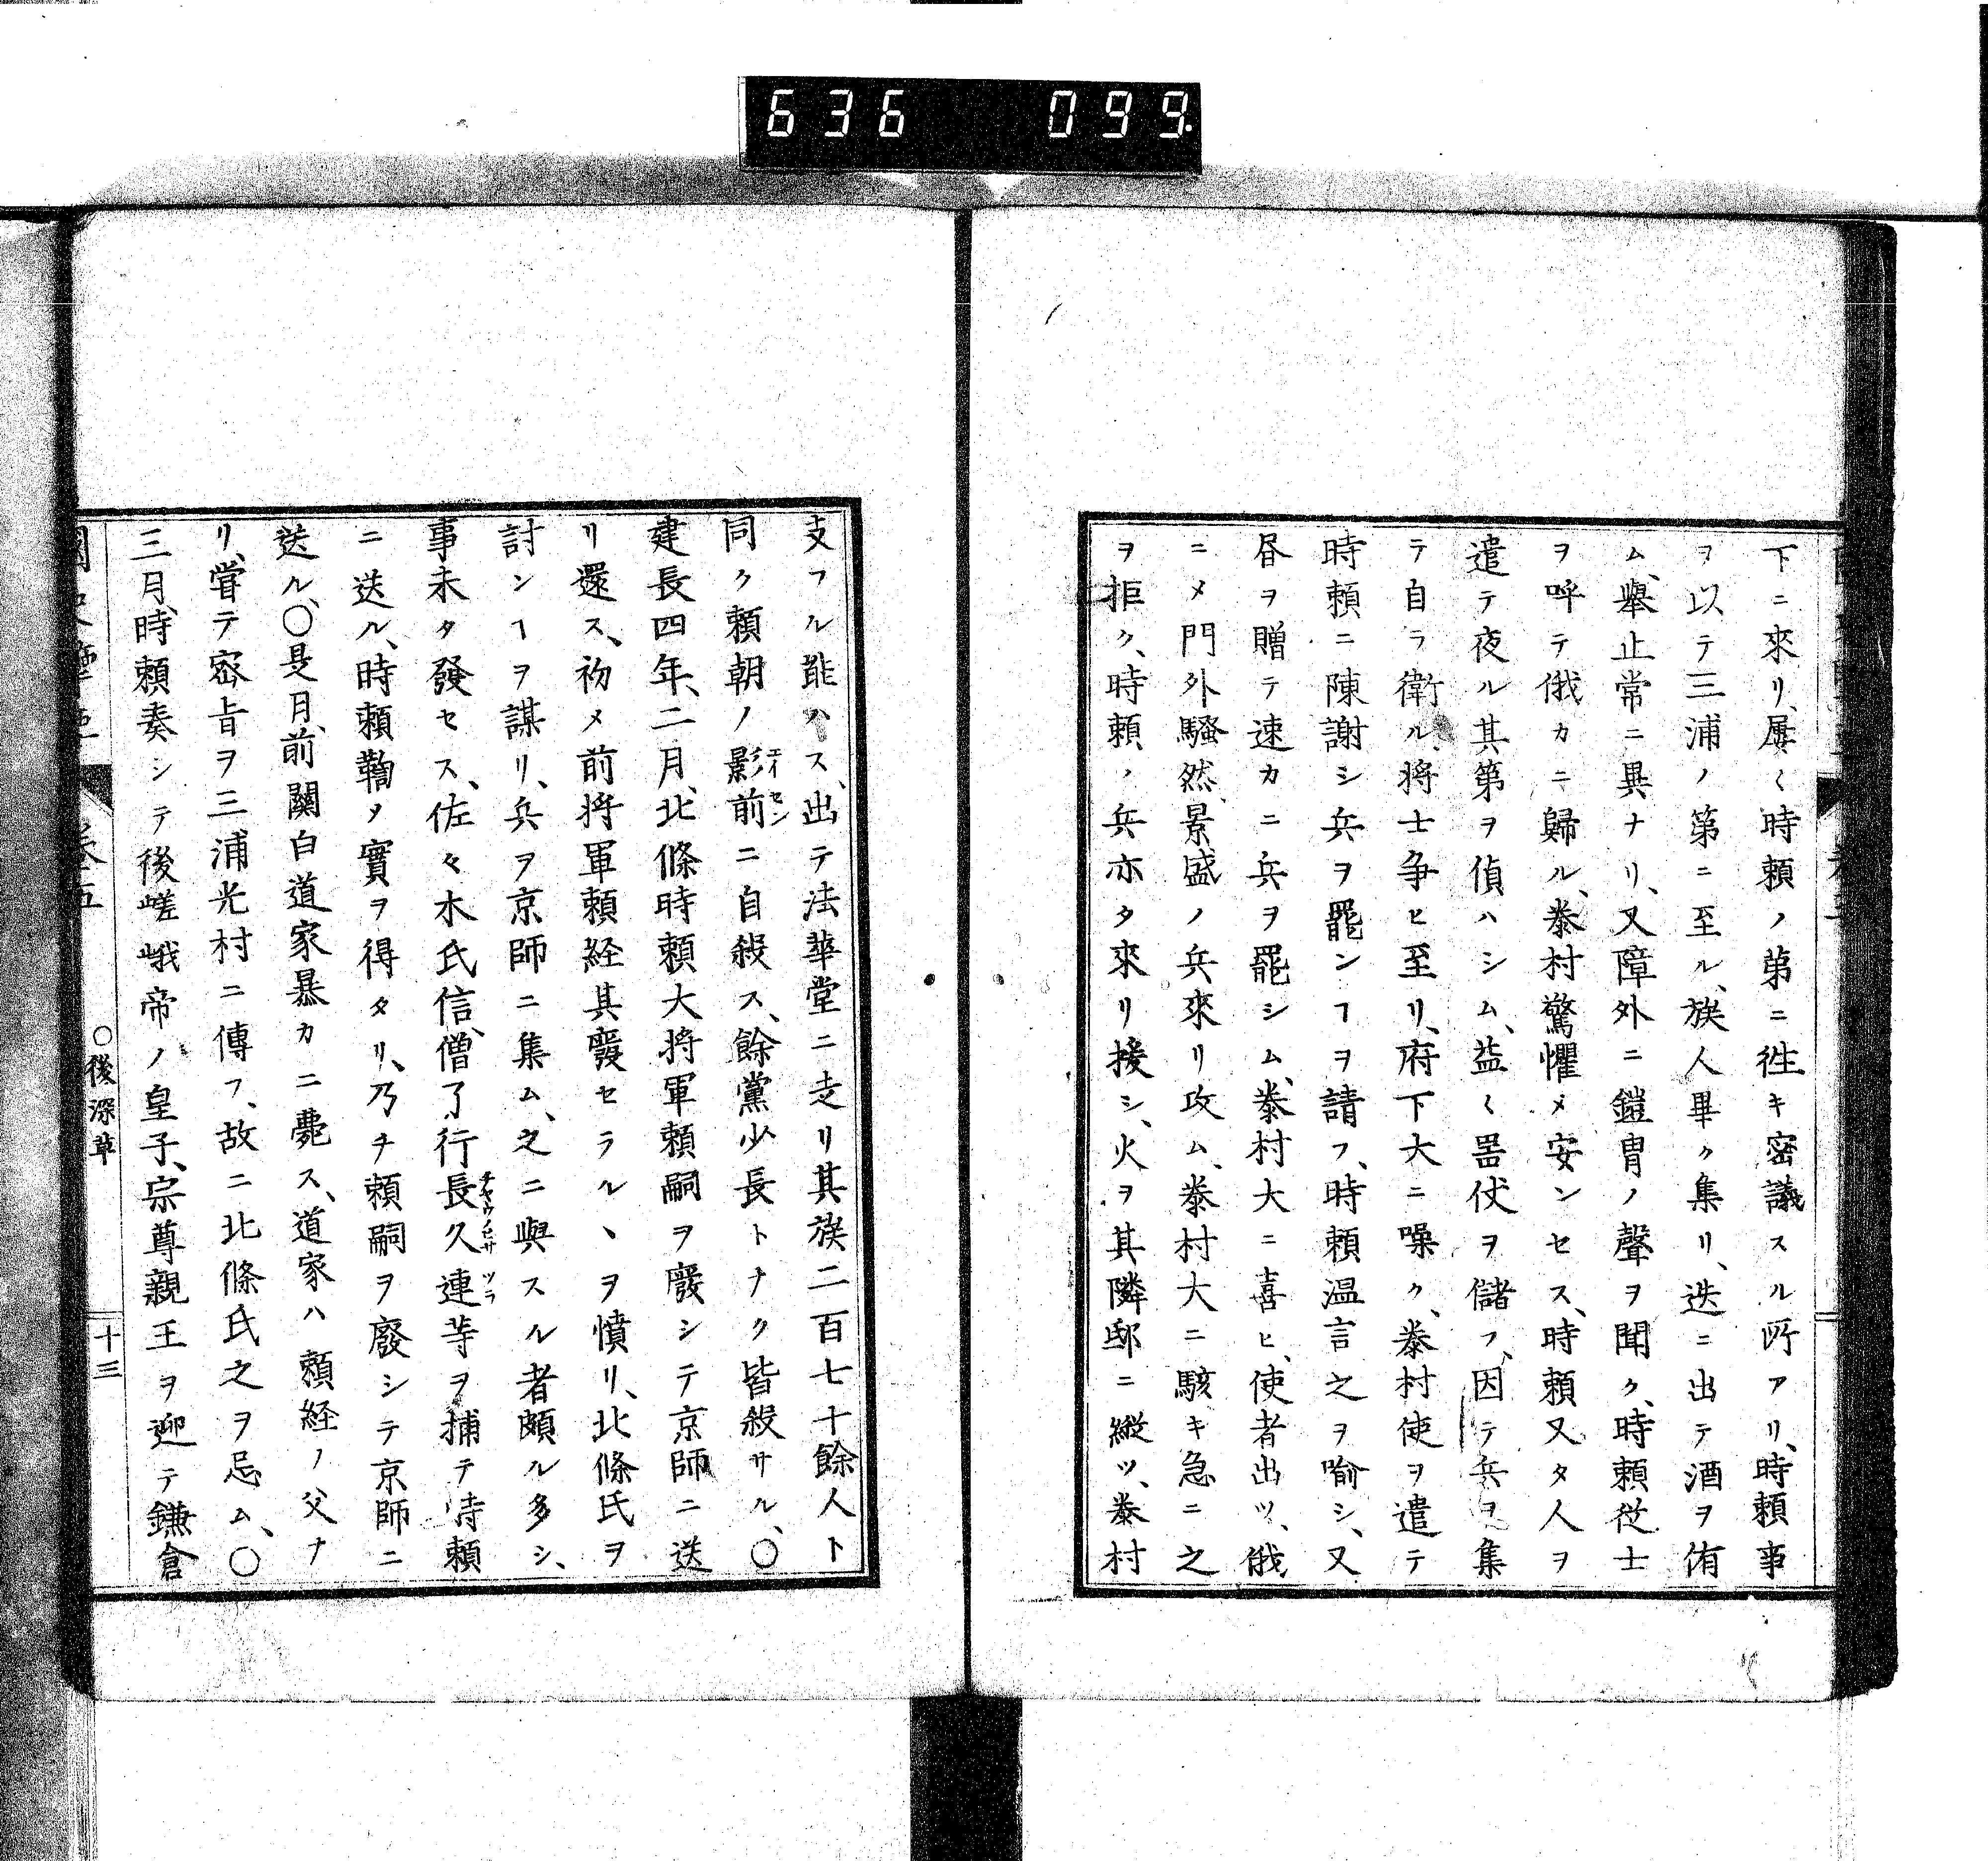 636 099.
下ニ來リ、屢〻時頼ノ第ニ徃キ密議スル所アリ、時頼事
ヲ以テ三浦ノ第ニ至ル、族人畢ク集リ、迭ニ出テ酒ヲ侑
ム、擧止常ニ異ナリ、又障外ニ鎧冑ノ聲ヲ聞ク、時頼從士
ヲ呼テ俄カニ歸ル、泰村驚懼メ安ンセス、時頼又タ人ヲ
遣テ夜ル其第ヲ偵ハシム、益〻噐仗ヲ儲フ、因テ兵ヲ集
テ自ラ衛ル、將士争ヒ至リ、府下大ニ噪ク、泰村使ヲ遣テ
時頼ニ陳謝シ兵ヲ罷ンヿヲ請フ、時頼温言之ヲ喩シ、又
昏ヲ贈テ速カニ兵ヲ罷シム、泰村大ニ喜ヒ、使者出ツ、俄
ニメ門外騒然、景盛ノ兵來リ攻ム、泰村大ニ駭キ急ニ之
ヲ拒ク、時頼ノ兵亦タ來リ援シ、火ヲ其隣邸ニ縱ツ、泰村
支フル能ハス、出テ法華堂ニ走リ其族二百七十餘人ト
同ク頼朝ノ影前エイセンニ自殺ス、餘黨少長トナク皆殺サル、〇
建長四年、二月、北條時頼大將軍頼嗣ヲ廢シテ京師ニ送
リ還ス、初メ前將軍頼経其廢セラルヽヲ憤リ、北條氏ヲ
討ンヿヲ謀リ、兵ヲ京師ニ集ム、之ニ與スル者頗ル多シ、
事未タ發セス、佐々木氏信、僧了行長久連チヤウノヒサツラ等ヲ捕テ時頼
ニ送ル、時頼鞫メ實ヲ得タリ、乃チ頼嗣ヲ廢シテ京師ニ
送ル、〇是月、前關白道家暴カニ薨ス、道家ハ頼経ノ父ナ
リ、甞テ密旨ヲ三浦光村ニ傳フ、故ニ北條氏之ヲ忌ム、〇
三月、時頼奏シテ後嵯峨帝ノ皇子、宗尊親王ヲ迎テ鎌倉
卷五 〇後深草 十三